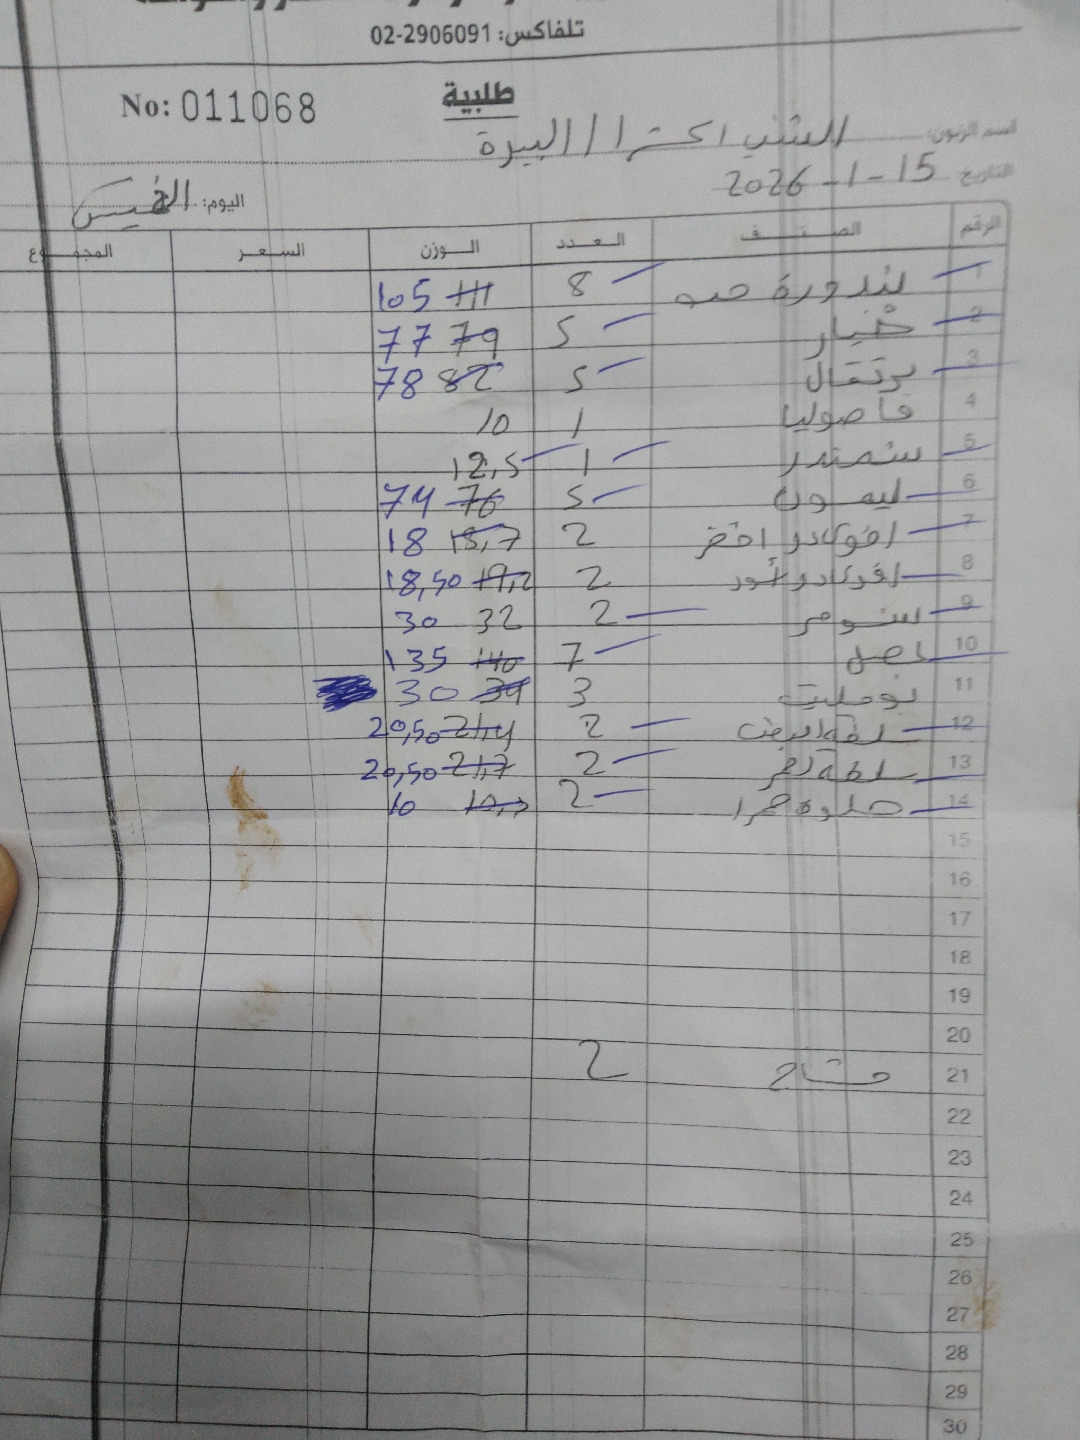 تلفاكس: 02-2906091
No: 011068
طلبية
اسم الزبون: الشني اكسترا / البيرة
التاريخ: 15-1-2026
اليوم: الخميس
الرقم الصنف العدد الوزن السعر المجموع
1 بندورة حب 8 111 105
2 خيار 5 79 77
3 برتقال 5 82 78
4 فاصوليا 1 10
5 شمندر 1 12,5
6 ليمون 5 76 74
7 افوكادو اخضر 2 18,7 18
8 افوكادو اسود 2 19,2 18,50
9 2 32 30
10 بصل 7 140 135
11 بومليت 3 34 30
12 2 21,4 20,50
13 2 21,7 20,50
14 حلوة حمرا 2 10
15
16
17
18
19
20
21 2
22
23
24
25
26
27
28
29
30